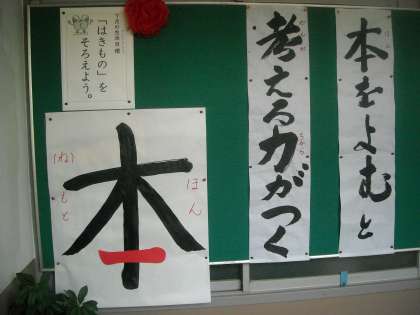 本をよむと
考える力がつく
「はきもの」を
そろえよう。
本
ほん
(ね)
もと